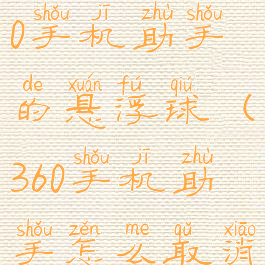 shǒu jī zhù shǒu
0手机助手
de xuán fú qiú
的悬浮球（
shǒu jī zhù
360手机助
shǒu zěn me qǔ xiāo
手怎么取消